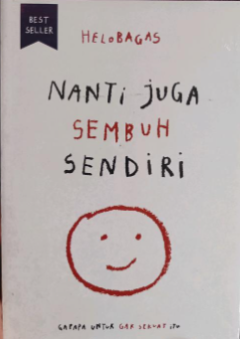 BEST
SELLER
HELOBAGAS
NANTI JUGA
SEMBUH
SENDIRI
GAPAPA UNTUK GAK SEKUAT ITU